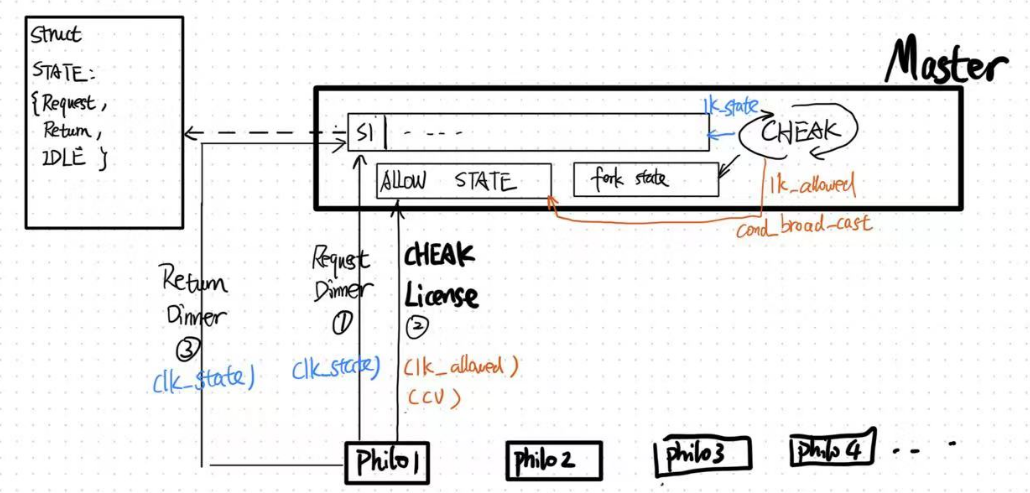 Struct
STATE:
{Request,
Return,
IDLE }
Master
lk_state
S1 - ---
CHEAK
ALLOW STATE
fork state
lk_allowed
cond_broad-cast
Return
Dinner
③
(lk_state)
Request
Dinner
①
(lk_state)
CHEAK
License
②
(lk_allowed)
(CV)
Philo1
philo2
philo3
philo4 ...